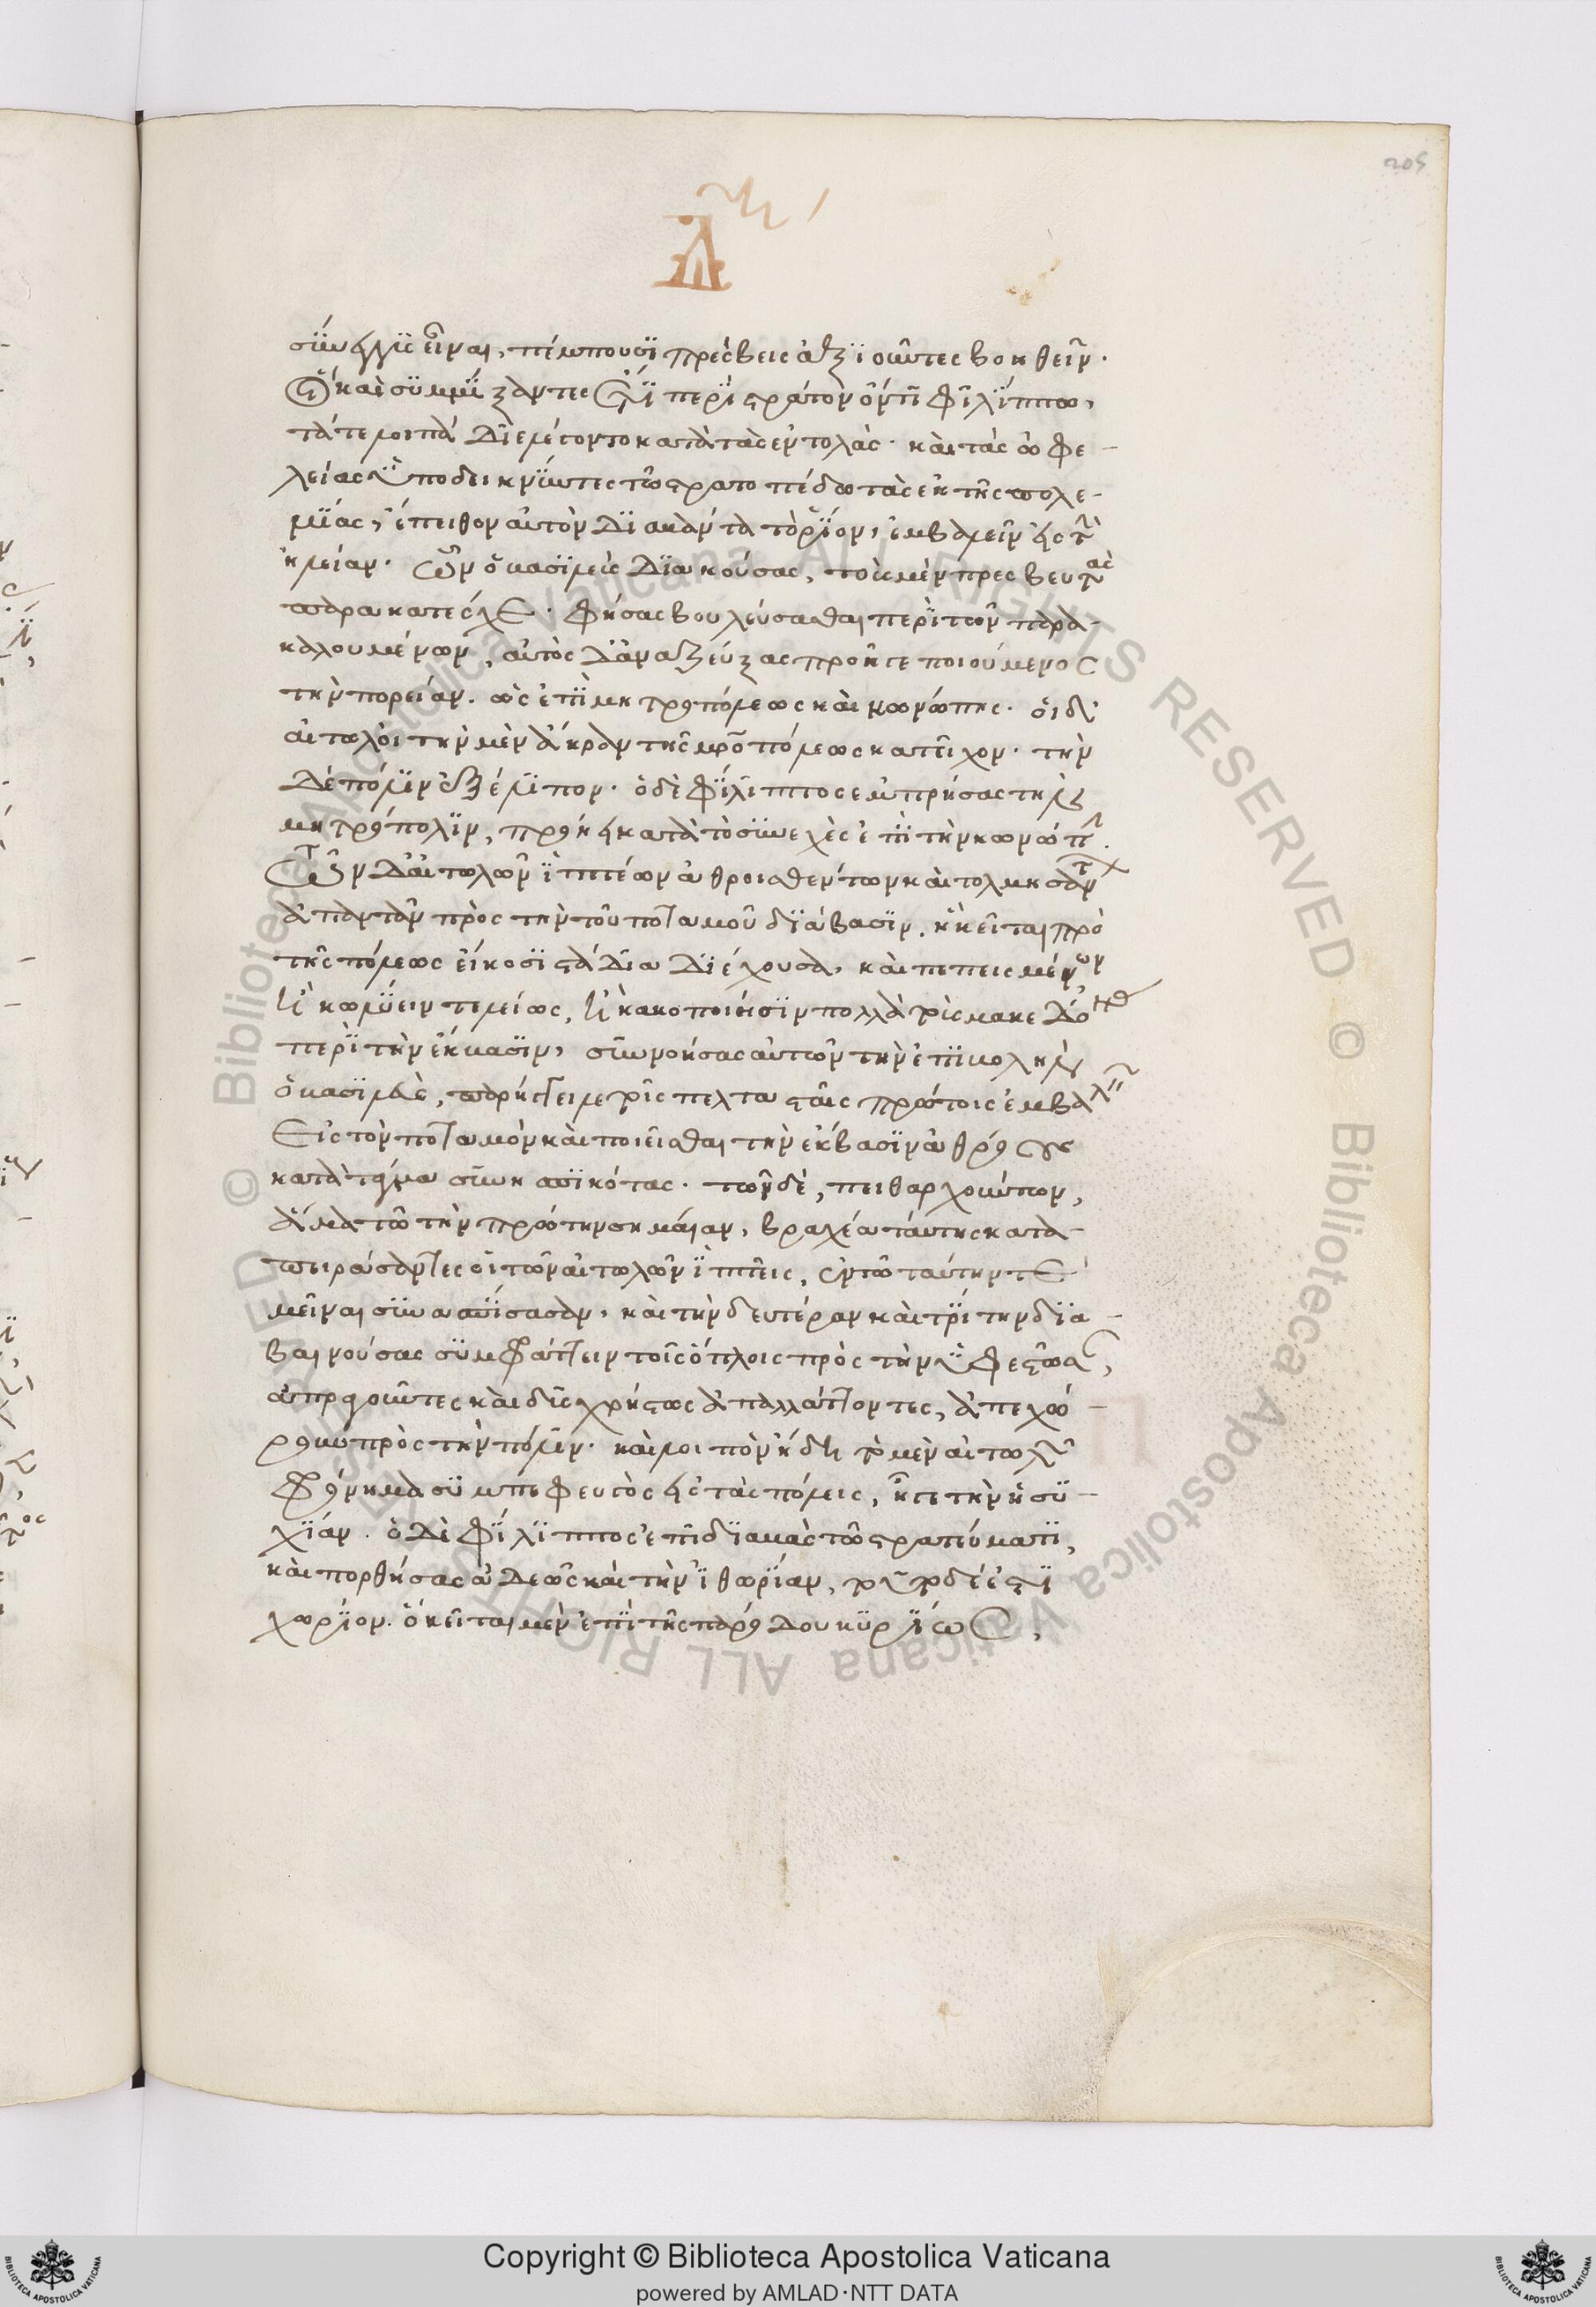 205
Δ
συνεγγὺς εἶναι, πέμπουσι πρέσβεις ἀξιοῦντες βοηθεῖν·
οἳ καὶ συμμίξαντες ἔτι περὶ στράτον ὄντι φιλίππω,
τά τε λοιπὰ διελέγοντο κατὰ τὰς ἐντολάς· καὶ τὰς ὠφε-
λείας ὑποδεικνύντες τῶ στρατοπέδω τὰς ἐκ τῆς πολε-
μίας, ἔπειθον αὐτὸν διαβάντα τὸ ῥίον, ἐμβαλεῖν εἰς τὴν
ἠλείαν· ὧν ὁ βασιλεὺς διακούσας, τοὺς μὲν πρεσβευτὰς
παρακατέσχε· φήσας βουλεύσασθαι περὶ τῶν παρα-
καλουμένων, αὐτὸς δ' ἀναζεύξας προῆγε ποιούμενος
τὴν πορείαν. ὡς ἐπὶ μητροπόλεως καὶ κωνώπης. οἱ δ'
αἰτωλοὶ τὴν μὲν ἄκραν τῆς μητροπόλεως κατεῖχον· τὴν
δὲ πόλιν ἐξέλιπον. ὁ δὲ φίλιππος ἐμπρήσας τὴν
μητρόπολιν, προήει κατὰ τὸ συνεχὲς ἐπὶ τὴν κωνώπην.
τῶν δ' αἰτωλῶν ἱππέων ἀθροισθέντων καὶ τολμησάντων
ἀπαντᾶν πρὸς τὴν τοῦ ποταμοῦ διάβασιν. ἣ κεῖται πρὸ
τῆς πόλεως εἴκοσι στάδια διέχουσα, καὶ πεπεισμένων
ἢ κωλύειν τελείως, ἢ κακοποιήσειν πολλὰ τοὺς μακεδόνας
περὶ τὴν ἔκβασιν, συννοήσας αὐτῶν τὴν ἐπιβολὴν
ὁ βασιλεὺς, παρήγγειλε τοῖς πελτασταῖς πρώτοις ἐμβαλεῖν
εἰς τὸν ποταμὸν καὶ ποιεῖσθαι τὴν ἔκβασιν ἀθρόους
κατὰ τάγμα συνησπικότας· τῶν δὲ, πειθαρχούντων,
ἅμα τῶ τὴν πρώτην σημαίαν, βραχέα ταύτης κατα-
πειράσαντες οἱ τῶν αἰτωλῶν ἱππεῖς, ἐν τῶ ταύτην τε
μεῖναι συνασπίσασαν, καὶ τὴν δευτέραν καὶ τρίτην δια-
βαινούσας συμφράττειν τοῖς ὅπλοις πρὸς τὴν ὑφεστῶσαν,
ἀπραγοῦντες καὶ δυσχρήστως ἀπαλλάττοντες, ἀπεχώ-
ρουν πρὸς τὴν πόλιν· καὶ λοιπὸν ἤδη τὸ μὲν αἰτωλῶν
φρόνημα συμπεφευγὸς εἰς τὰς πόλεις, ἦγε τὴν ἡσυ-
χίαν. ὁ δὲ φίλιππος ἐπιδιαβὰς τῶ στρατεύματι,
καὶ πορθήσας ἀδεῶς καὶ τὴν ἰθωρίαν, τοῦτο δέ ἐστι
χωρίον. ὃ κεῖται μὲν ἐπὶ τῆς παρόδου κυρίως,
Copyright © Biblioteca Apostolica Vaticana
powered by AMLAD·NTT DATA